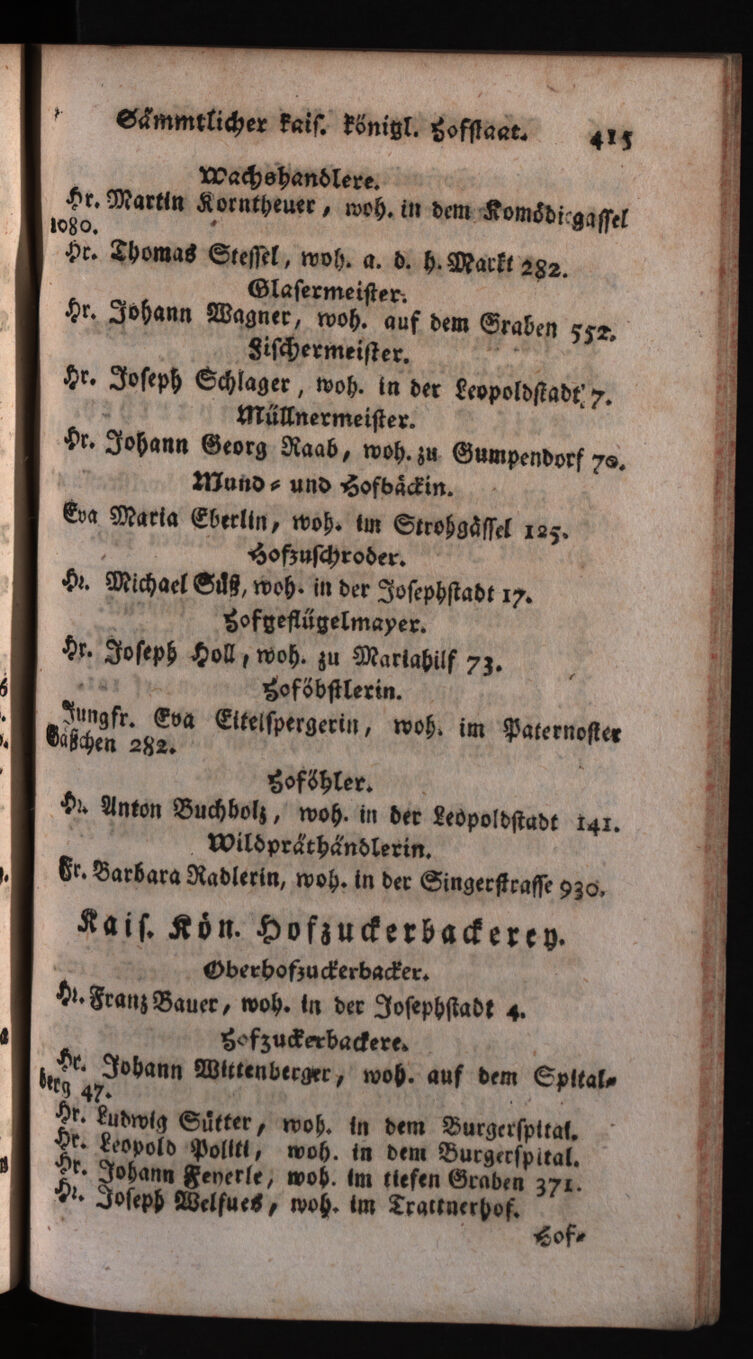 Sämmtlicher kais. königl. Hofstaat. 415
Wachshandlere.
Hr. Martin Korntheuer, woh. in dem Komödiegassel
1080.
Hr. Thomas Stessel, woh. a. d. h. Markt 282.
Glasermeister.
Hr. Johann Wagner, woh. auf dem Graben 552.
Fischermeister.
Hr. Joseph Schlager, woh. in der Leopoldstadt 7.
Müllnermeister.
Hr. Johann Georg Raab, woh. zu Gumpendorf 70.
Mund- und Hofbäckin.
Eva Maria Eberlin, woh. im Strohgässel 125.
Hofzuschroder.
Hr. Michael Süß, woh. in der Josephstadt 17.
Hofgeflügelmayer.
Hr. Joseph Holl, woh. zu Mariahilf 73.
Hoföbstlerin.
Jungfr. Eva Eitelspergerin, woh. im Paternoster
Gäßchen 282.
Hoföhler.
Hr. Anton Buchholz, woh. in der Leopoldstadt 141.
Wildpräthändlerin.
Fr. Barbara Radlerin, woh. in der Singerstrasse 930.
Kais. Kön. Hofzuckerbackerey.
Oberhofzuckerbacker.
Hr. Franz Bauer, woh. in der Josephstadt 4.
Hofzuckerbackere.
Hr. Johann Wittenberger, woh. auf dem Spital-
berg 47.
Hr. Ludwig Sütter, woh. in dem Burgerspital.
Hr. Leopold Politi, woh. in dem Burgerspital.
Hr. Johann Feyerle, woh. im tiefen Graben 371.
Hr. Joseph Welfues, woh. im Trattnerhof.
Hof-